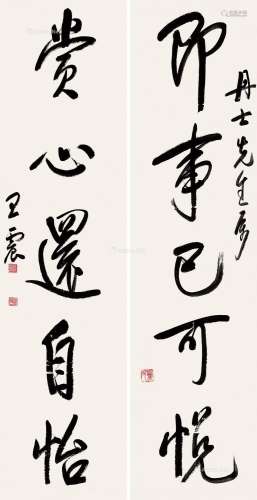 即事已可悦
丹士先生属
赏心還自怡
王震